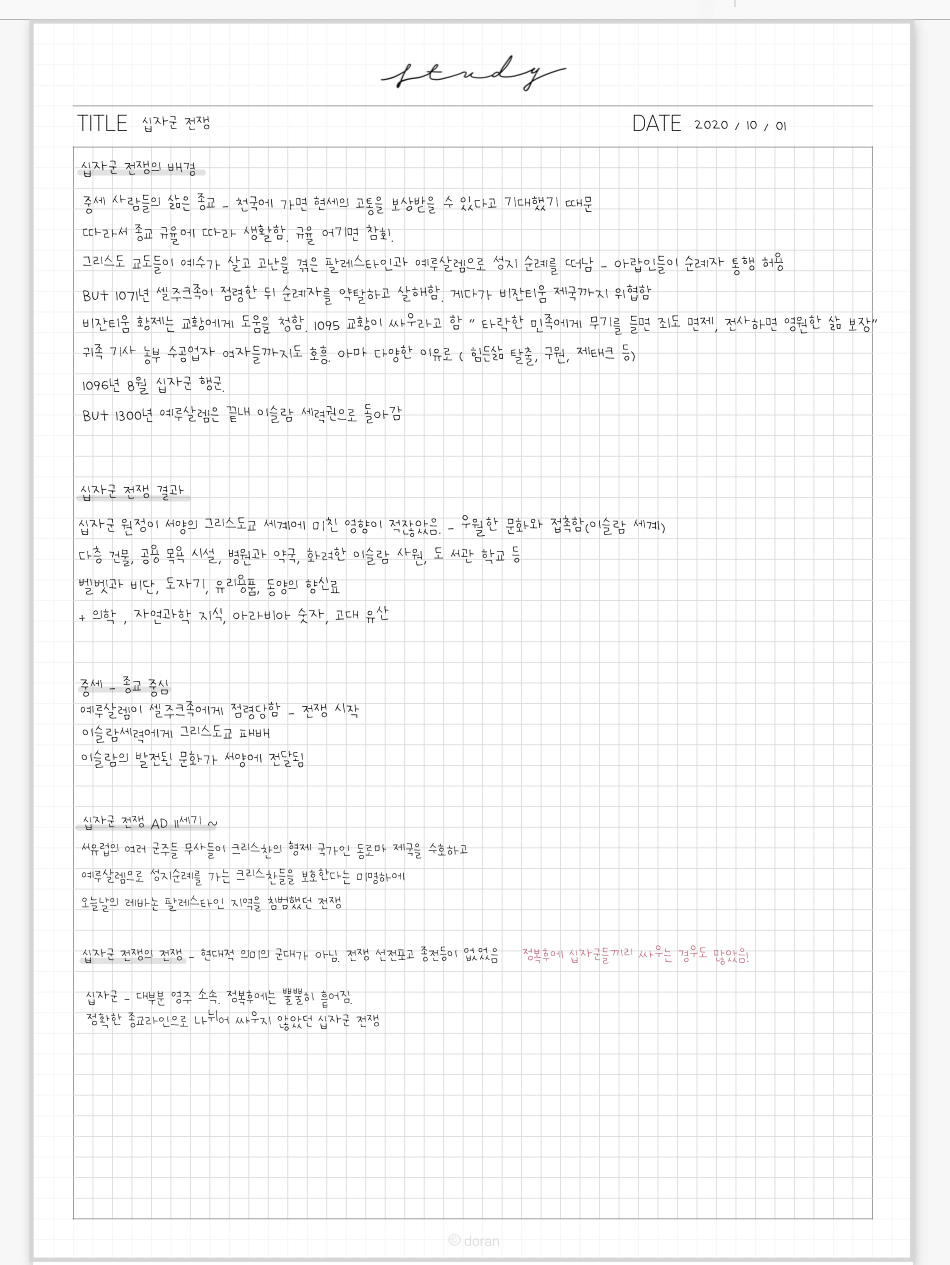 study
TITLE 십자군 전쟁 DATE 2020 / 10 / 01
십자군 전쟁의 배경
중세 사람들의 삶은 종교 - 천국에 가면 현세의 고통을 보상받을 수 있다고 기대했기 때문
따라서 종교 규율에 따라 생활함. 규율 어기면 참회.
그리스도 교도들이 예수가 살고 고난을 겪은 팔레스타인과 예루살렘으로 성지 순례를 떠남 - 아랍인들이 순례자 통행 허용
But 1071년 셀주크족이 점령한 뒤 순례자를 약탈하고 살해함. 게다가 비잔티움 제국까지 위협함
비잔티움 황제는 교황에게 도움을 청함. 1095 교황이 싸우라고 함 " 타락한 민족에게 무기를 들면 죄도 면제, 전사하면 영원한 삶 보장"
귀족 기사 농부 수공업자 여자들까지도 호응. 아마 다양한 이유로 ( 힘든삶 탈출, 구원, 재테크 등)
1096년 8월 십자군 행군.
But 1300년 예루살렘은 끝내 이슬람 세력권으로 돌아감
십자군 전쟁 결과
십자군 원정이 서양의 그리스도교 세계에 미친 영향이 적잖았음. - 우월한 문화와 접촉함(이슬람 세계)
다층 건물, 공용 목욕 시설, 병원과 약국, 화려한 이슬람 사원, 도 서관 학교 등
벨벳과 비단, 도자기, 유리용품, 동양의 향신료
+ 의학 , 자연과학 지식, 아라비아 숫자, 고대 유산
중세 - 종교 중심
예루살렘이 셀주크족에게 점령당함 - 전쟁 시작
이슬람세력에게 그리스도교 패배
이슬람의 발전된 문화가 서양에 전달됨
십자군 전쟁 AD 11세기 ~
서유럽의 여러 군주들 무사들이 크리스찬의 형제 국가인 동로마 제국을 수호하고
예루살렘므로 성지순례를 가는 크리스찬들을 보호한다는 미명하에
오늘날의 레바논 팔레스타인 지역을 침범했던 전쟁
십자군 전쟁의 전쟁 - 현대적 의미의 군대가 아님. 전쟁 선전포고 종전등이 없었음 정복후에 십자군들끼리 싸우는 경우도 많았음!
십자군 - 대부분 영주 소속. 정복후에는 뿔뿔히 흩어짐.
정확한 종교라인으로 나뉘어 싸우지 않았던 십자군 전쟁
© doran